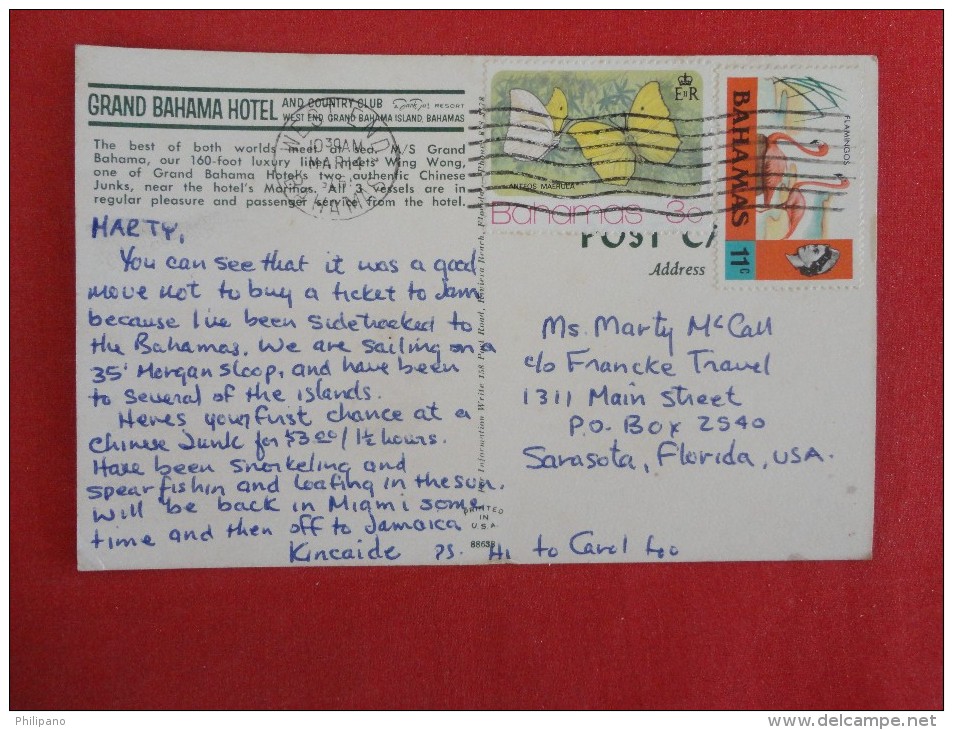 GRAND BAHAMA HOTEL
AND COUNTRY CLUB RESORT
WEST END, GRAND BAHAMA ISLAND, BAHAMAS
The best of both worlds meet at sea. M/S Grand
Bahama, our 160-foot luxury liner, meets Wing Wong,
one of Grand Bahama Hotel's two authentic Chinese
Junks, near the hotel's Marinas. All 3 vessels are in
regular pleasure and passenger service from the hotel.
WEST END
1030AM
MAR 14
BAHAMAS
MARTY,
You can see that it was a good
move not to buy a ticket to Jam
because I've been sidetracked to
the Bahamas. We are sailing on a
35' Morgan Sloop, and have been
to several of the islands.
Heres your first chance at a
Chinese Junk for $3.00/1½ hours.
Have been snorkeling and
spearfishin and loafing in the sun.
Will be back in Miami some
time and then off to Jamaica
Kincaide PS. Hi to Carol too
For Information Write 158 Post Road, Riviera Beach, Florida
PRINTED
IN
U.S.A.
88638
E II R
ANTEOS MAERULA
Bahamas 3c
FLAMINGOS
BAHAMAS
11c
POST CA
Address
Ms. Marty McCall
c/o Francke Travel
1311 Main Street
P.O. Box 2540
Sarasota, Florida, USA.
Philipano
www.delcampe.net